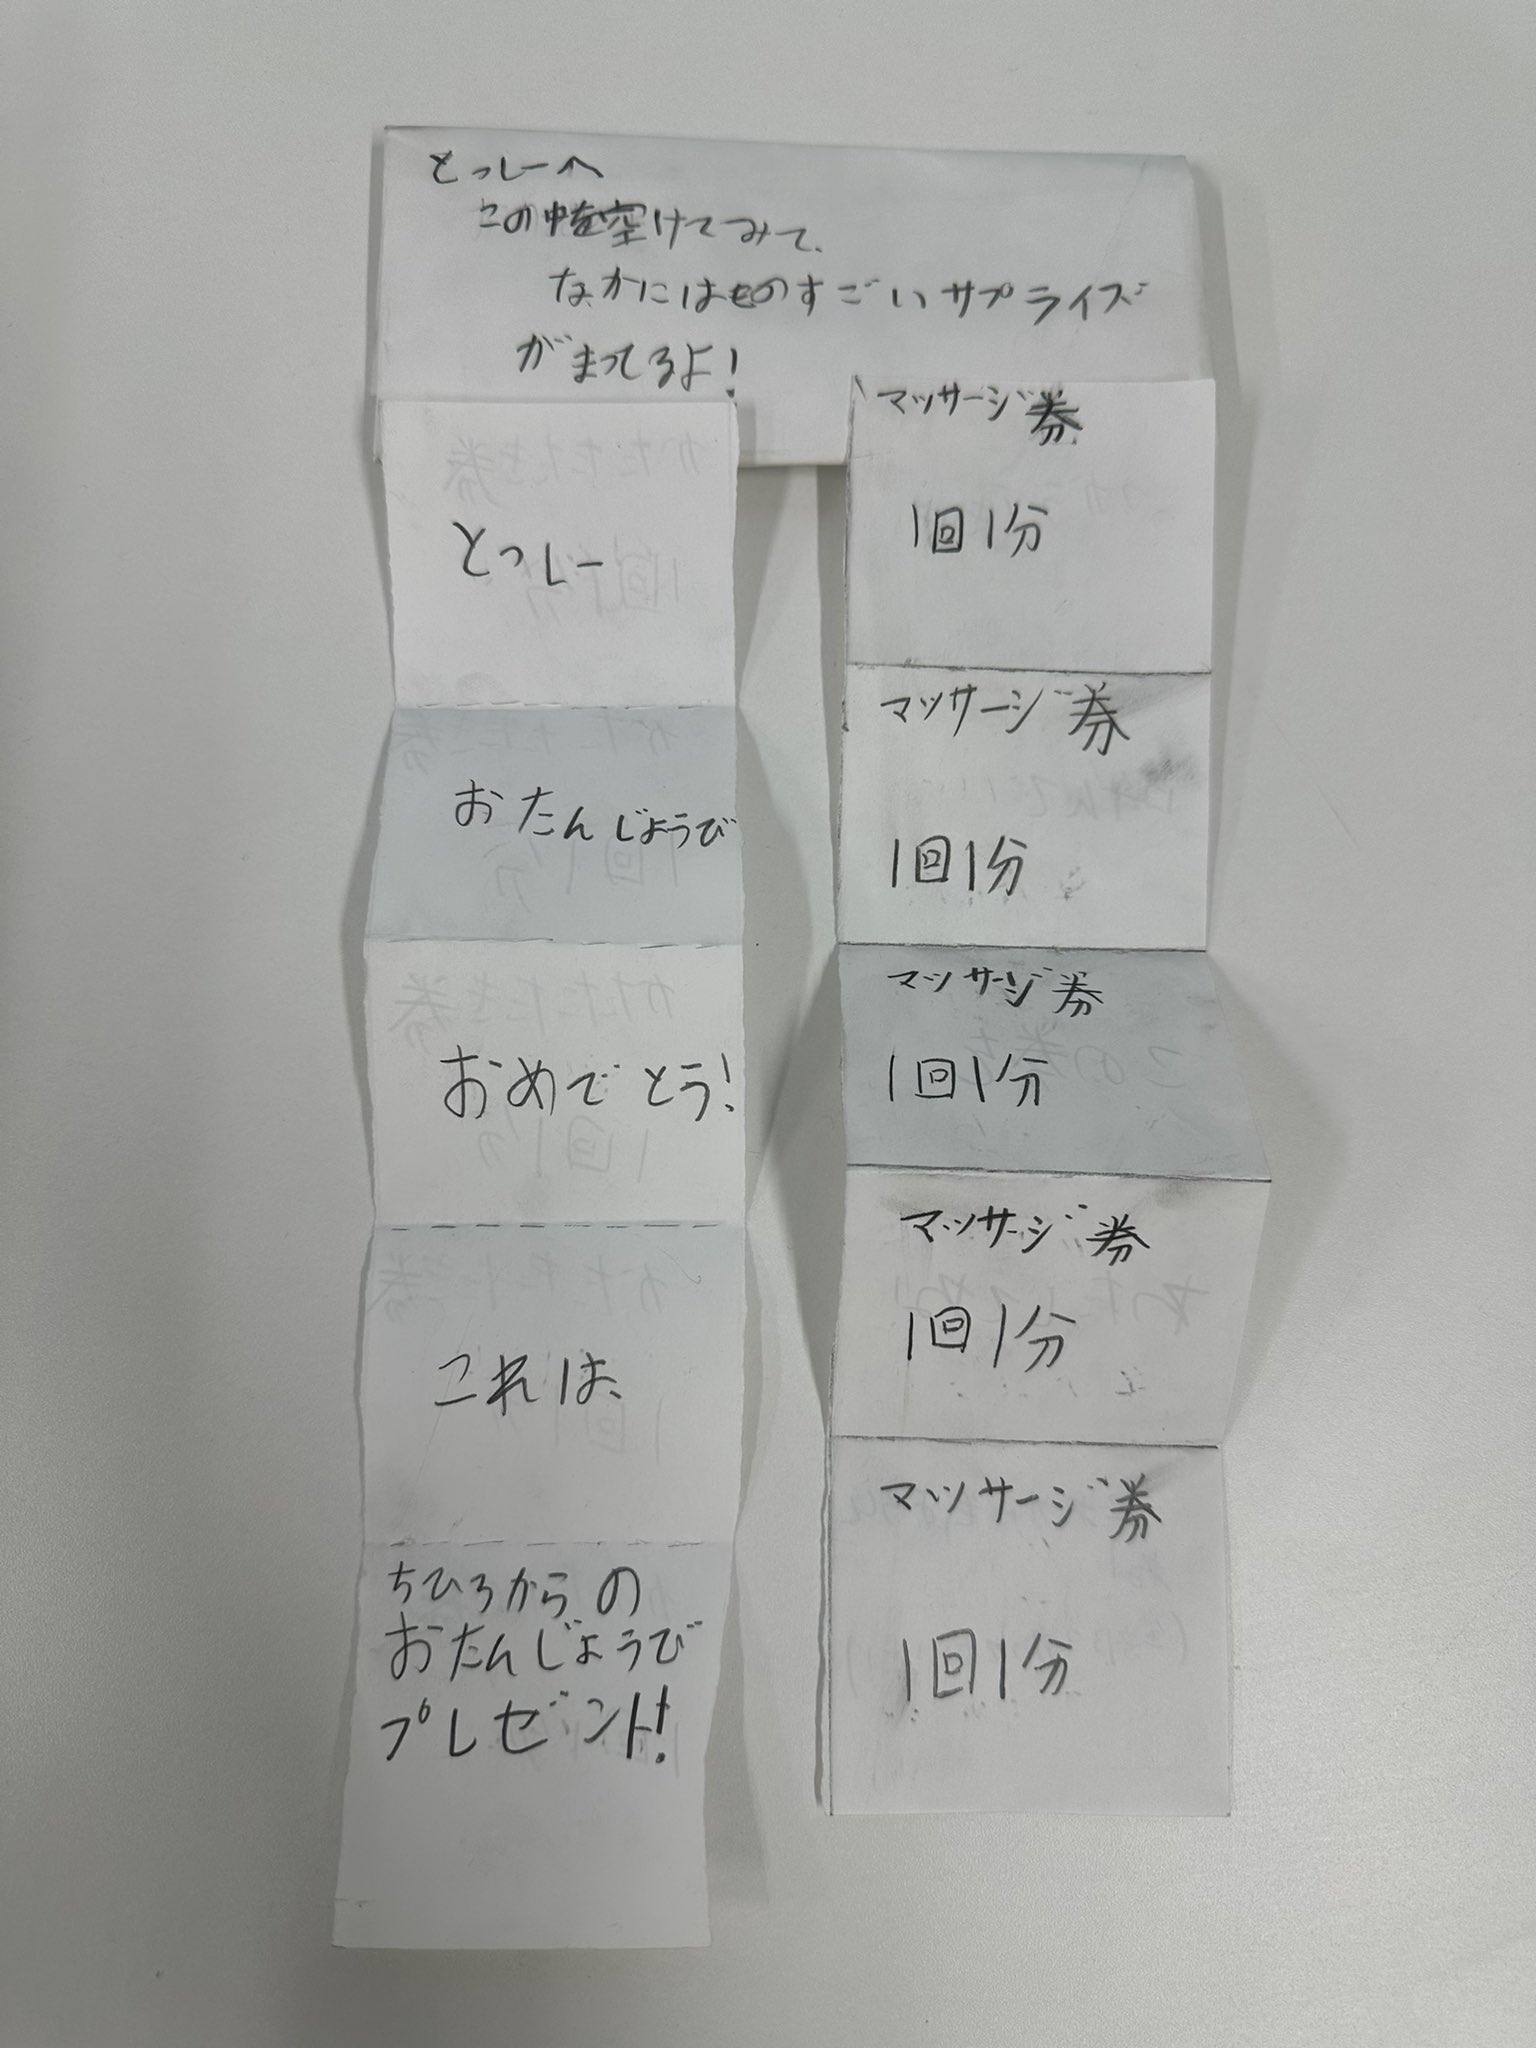 とっしーへ
この中を空けてみて、
なかにはものすごいサプライズ
がまってるよ!
とっしー
おたんじょうび
おめでとう!
これは、
ちひろからの
おたんじょうび
プレゼント!
マッサージ券
1回1分
マッサージ券
1回1分
マッサージ券
1回1分
マッサージ券
1回1分
マッサージ券
1回1分